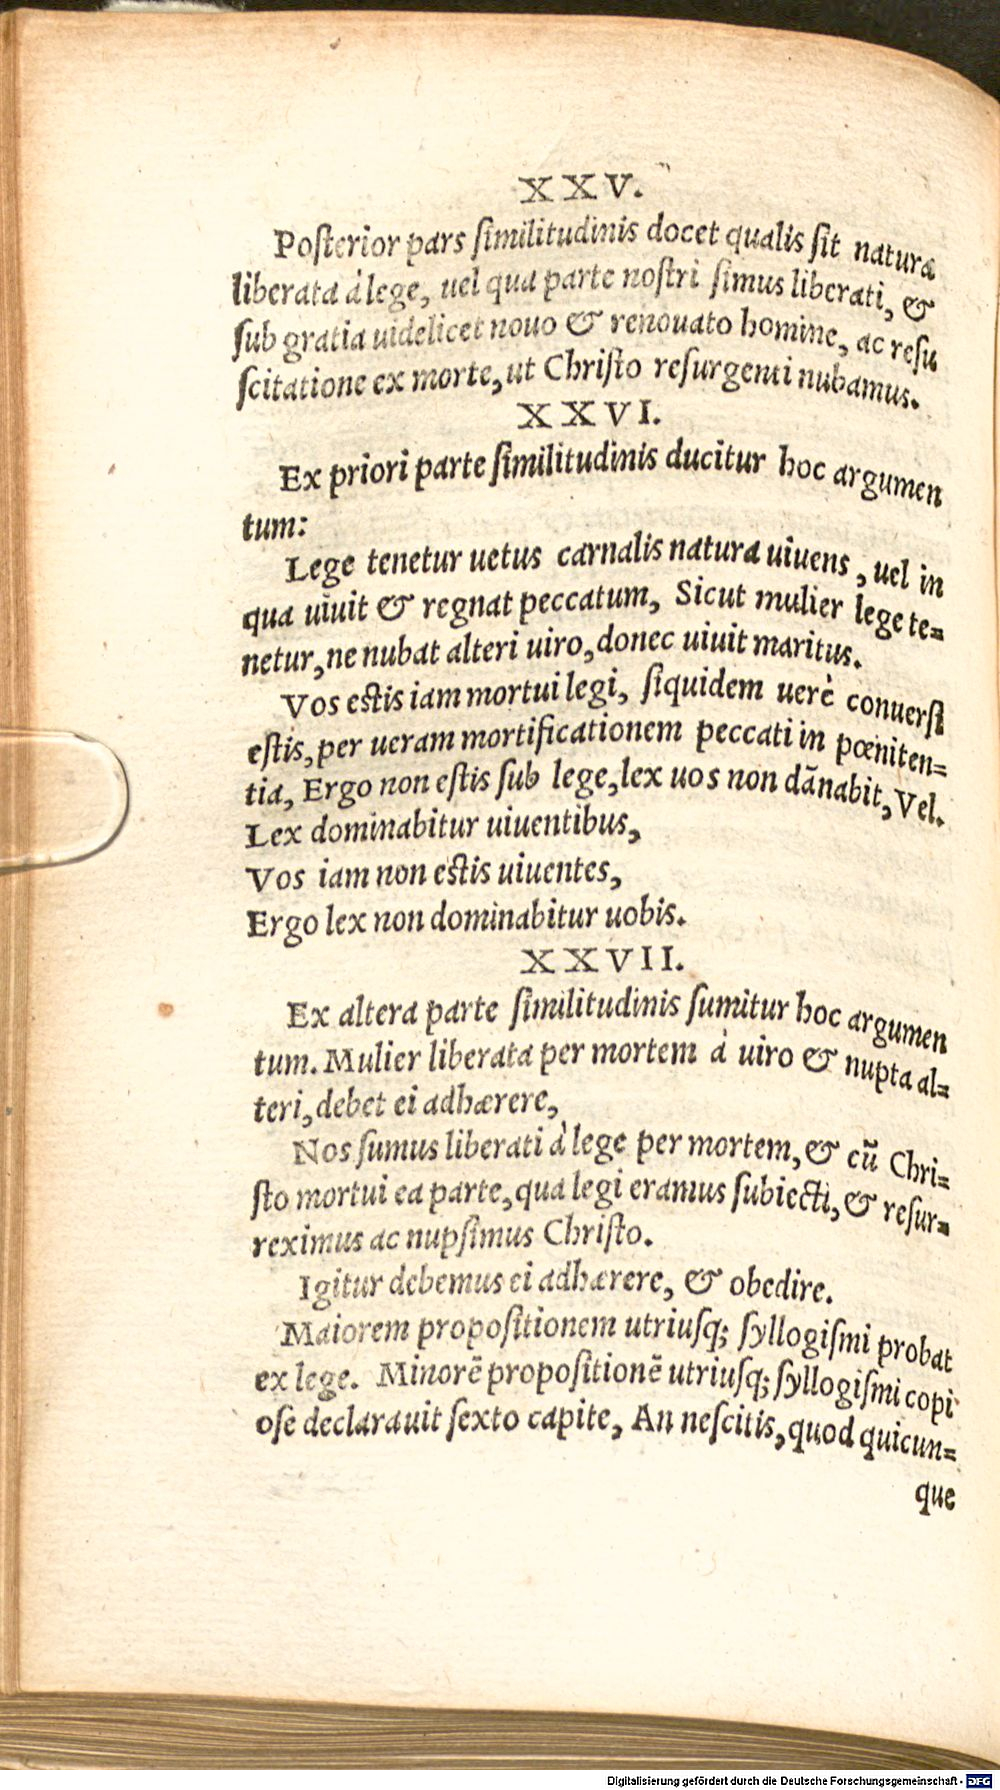 XXV.
Poſterior pars ſimilitudinis docet qualis ſit natura
liberata à lege, uel qua parte noſtri ſimus liberati, &
ſub gratia uidelicet nouo & renouato homine, ac reſu
ſcitatione ex morte, ut Chriſto reſurgenti nubamus.
XXVI.
Ex priori parte ſimilitudinis ducitur hoc argumen
tum:
Lege tenetur uetus carnalis natura uiuens, uel in
qua uiuit & regnat peccatum, Sicut mulier lege te=
netur, ne nubat alteri uiro, donec uiuit maritus.
Vos eſtis iam mortui legi, ſiquidem uerè conuerſi
eſtis, per ueram mortificationem peccati in pœniten=
tia, Ergo non eſtis ſub lege, lex uos non dãnabit, Vel.
Lex dominabitur uiuentibus,
Vos iam non eſtis uiuentes,
Ergo lex non dominabitur uobis.
XXVII.
Ex altera parte ſimilitudinis ſumitur hoc argumen
tum. Mulier liberata per mortem à uiro & nupta al=
teri, debet ei adhærere,
Nos ſumus liberati à lege per mortem, & cũ Chri=
ſto mortui ea parte, qua legi eramus ſubiecti, & reſur=
reximus ac nupſimus Chriſto.
Igitur debemus ei adhærere, & obedire.
Maiorem propoſitionem utriuſq; ſyllogiſmi probat
ex lege. Minorẽ propoſitionẽ utriuſq; ſyllogiſmi copi
oſe declarauit ſexto capite, An neſcitis, quod quicun=
que
Digitalisierung gefördert durch die Deutsche Forschungsgemeinschaft - DFG